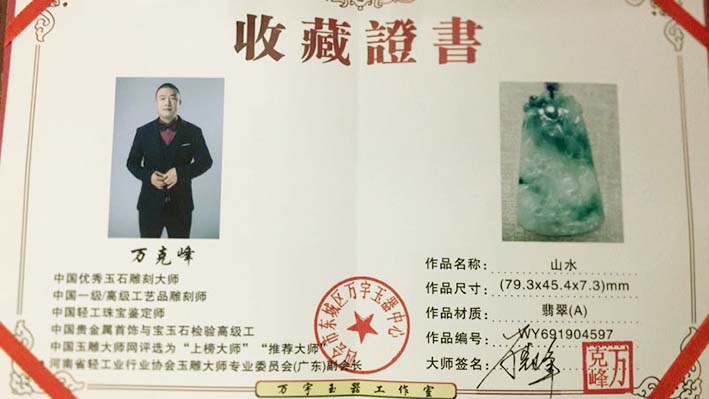 收藏證書
万克峰
中国优秀玉石雕刻大师
中国一级/高级工艺品雕刻师
中国轻工珠宝鉴定师
中国贵金属首饰与宝玉石检验高级工
中国玉雕大师网评选为“上榜大师”“推荐大师”
河南省轻工业行业协会玉雕大师专业委员会(广东)副会长
作品名称: 山水
作品尺寸: (79.3x45.4x7.3)mm
作品材质: 翡翠(A)
作品编号: WY691904597
大师签名: 万克峰
万克峰
四会市东城区万宇玉器中心
万宇玉器工作室